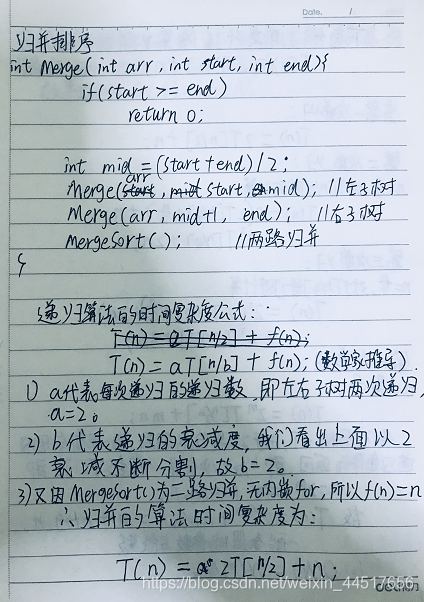 Date. /
归并排序
int Merge( int arr, int start, int end){
if(start >= end)
return 0;
int mid = (start + end) / 2;
Merge(arr, start, mid); //左子树
Merge(arr, mid+1, end); //右子树
MergeSort( ); //两路归并
}
递归算法的时间复杂度公式:
T(n) = aT[n/2] + f(n);
T(n) = aT[n/b] + f(n); (数学家推导).
1) a代表每次递归的递归数,即左右子树两次递归,
a=2。
2) b代表递归的衰减度,我们看出上面以2
衰减不断分割,故b=2。
3)又因MergeSort()为二路归并,无内嵌for,所以f(n)=n
∴归并的算法时间复杂度为:
T(n) = 2T[n/2] + n;
https://blog.csdn.net/weixin_44517656